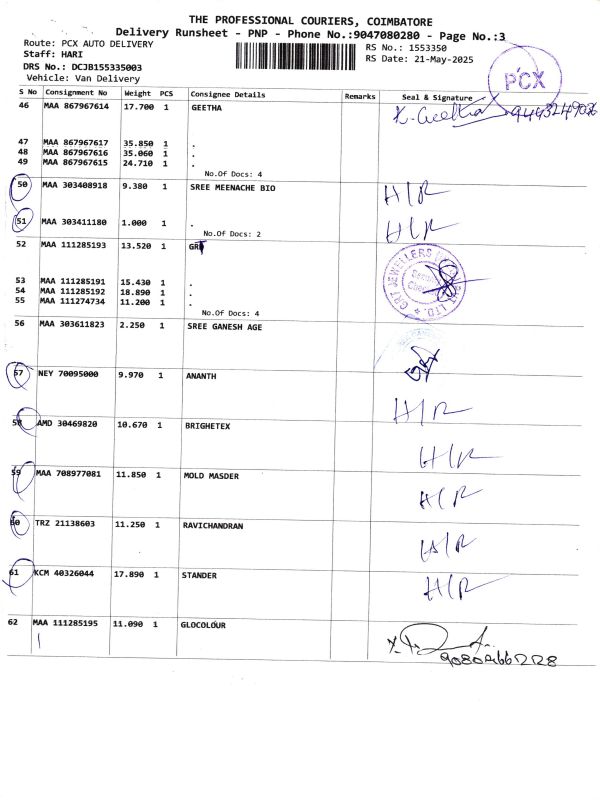 THE PROFESSIONAL COURIERS, COIMBATORE
Delivery Runsheet - PNP - Phone No.:9047080280 - Page No.:3
Route: PCX AUTO DELIVERY
RS No.: 1553350
Staff: HARI
RS Date: 21-May-2025
DRS No.: DCJB155335003
PCX
Vehicle: Van Delivery
S No Consignment No Weight PCS Consignee Details Remarks Seal & Signature
46 MAA 867967614 17.700 1 GEETHA K. Geetha
47 MAA 867967617 35.850 1 .
48 MAA 867967616 35.060 1 .
49 MAA 867967615 24.710 1 .
No.Of Docs: 4
50 MAA 303408918 9.380 1 SREE MEENACHE BIO H/R
51 MAA 303411180 1.000 1 . H/R
No.Of Docs: 2
52 MAA 111285193 13.520 1 GRT
GRT JEWELLERS LTD.
53 MAA 111285191 15.430 1 .
54 MAA 111285192 18.890 1 .
55 MAA 111274734 11.200 1 .
No.Of Docs: 4
56 MAA 303611823 2.250 1 SREE GANESH AGE
57 NEY 70095000 9.970 1 ANANTH H/R
58 AMD 30469820 10.670 1 BRIGHETEX H/R
59 MAA 708977081 11.850 1 MOLD MASDER H/R
60 TRZ 21138603 11.250 1 RAVICHANDRAN H/R
61 KCM 40326044 17.890 1 STANDER H/R
62 MAA 111285195 11.090 1 GLOCOLOUR